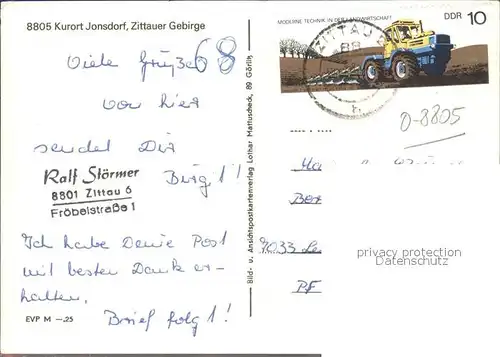 8805 Kurort Jonsdorf, Zittauer Gebirge
68
Viele Grüße
von hier
sendet Dir
Birgit!
Ralf Störmer
8801 Zittau 6
Fröbelstraße 1
Ich habe Deine Post
mit besten Dank er-
halten.
Brief folgt!
EVP M –.25
Bild- u. Ansichtspostkartenverlag Lothar Mattuscheck, 89 Görlitz
MODERNE TECHNIK IN DER LANDWIRTSCHAFT
DDR 10
ZITTAU
O-8805
7033 Le
PF
privacy protection
Datenschutz